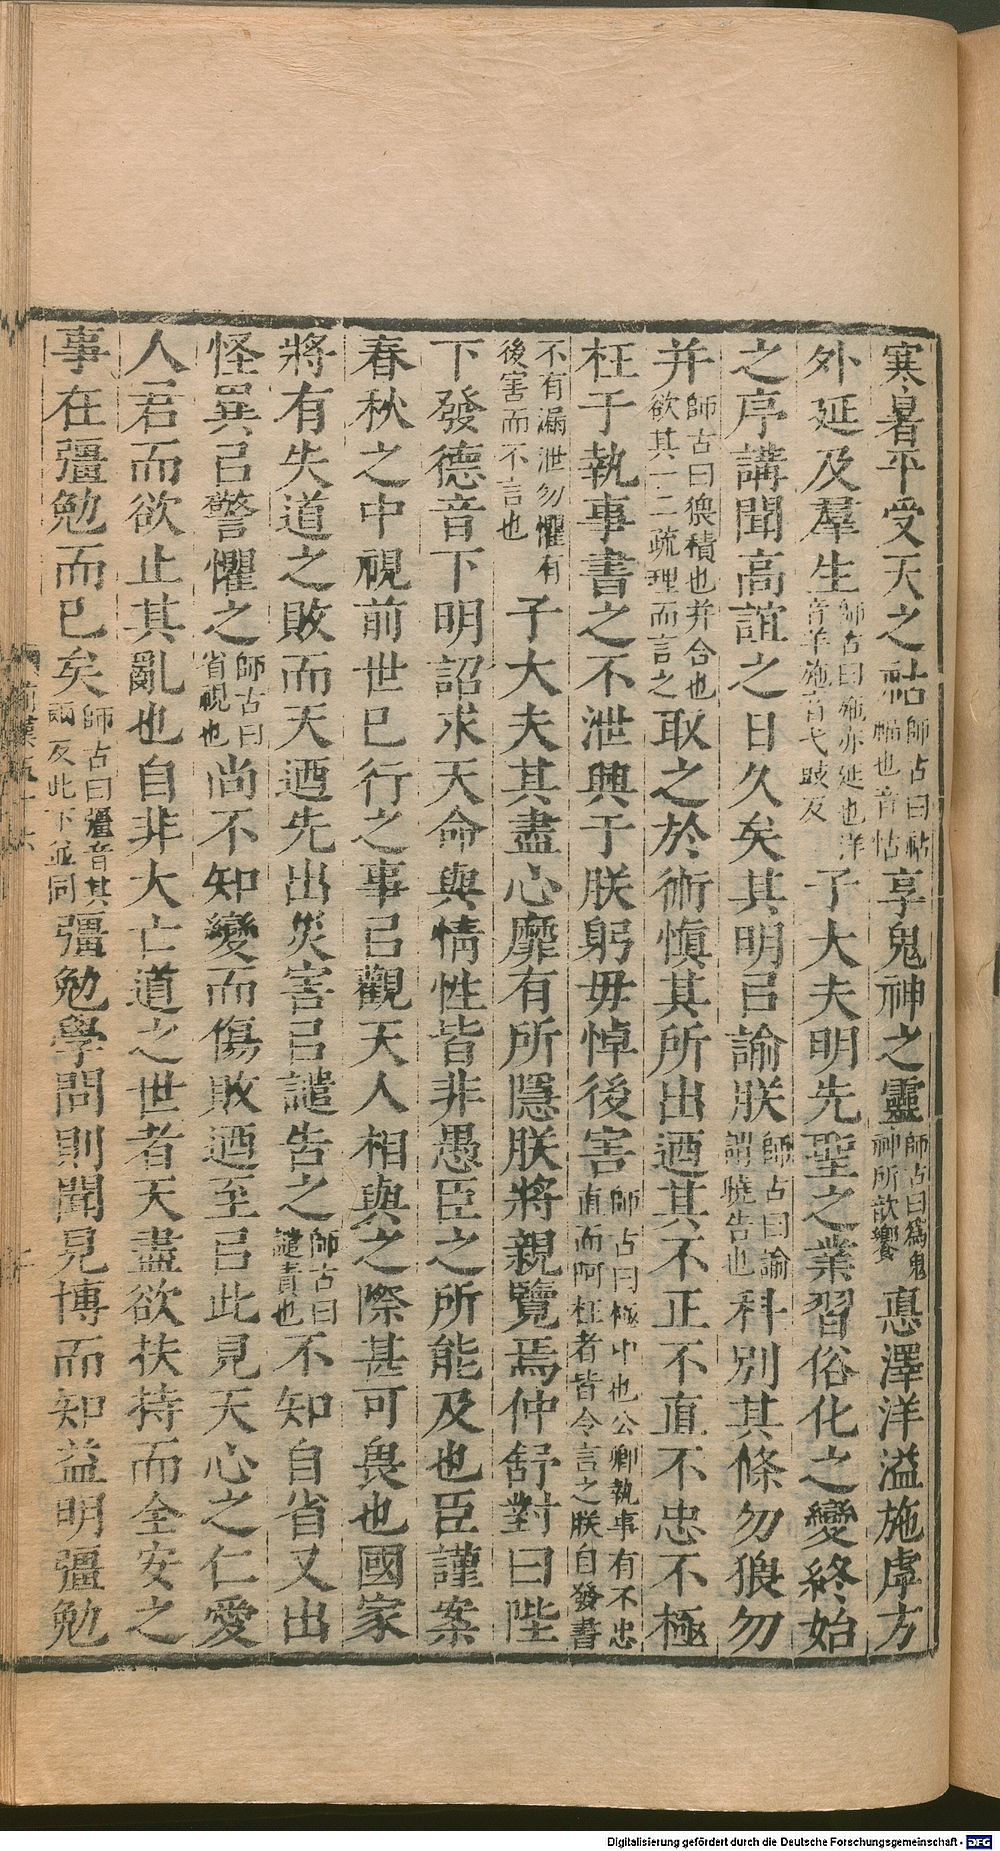 寒暑平受天之祜師古曰祜福也音怙享鬼神之靈師古曰爲鬼神所歆饗悳澤洋溢施虖方
外延及羣生師古曰施亦延也洋音羊施音弋豉反子大夫明先聖之業習俗化之變終始
之序講聞高誼之日久矣其明㠯諭朕師古曰諭謂曉告也科別其條勿猥勿
并師古曰猥積也并合也欲其一二疏理而言之取之於術愼其所出廼其不正不直不忠不極
枉于執事書之不泄興于朕躬毋悼後害師古曰極中也公卿執事有不忠直而阿枉者皆令言之朕自發書
不有漏泄勿懼有後害而不言也子大夫其盡心靡有所隱朕將親覽焉仲舒對曰陛
下發德音下明詔求天命與情性皆非愚臣之所能及也臣謹案
春秋之中視前世已行之事㠯觀天人相與之際甚可畏也國家
將有失道之敗而天廼先出災害㠯譴告之師古曰譴責也不知自省又出
怪異㠯警懼之師古曰省視也尚不知變而傷敗廼至㠯此見天心之仁愛
人君而欲止其亂也自非大亡道之世者天盡欲扶持而全安之
事在彊勉而已矣師古曰彊音其兩反此下並同彊勉學問則聞見博而知益明彊勉
Digitalisierung gefördert durch die Deutsche Forschungsgemeinschaft - DFG